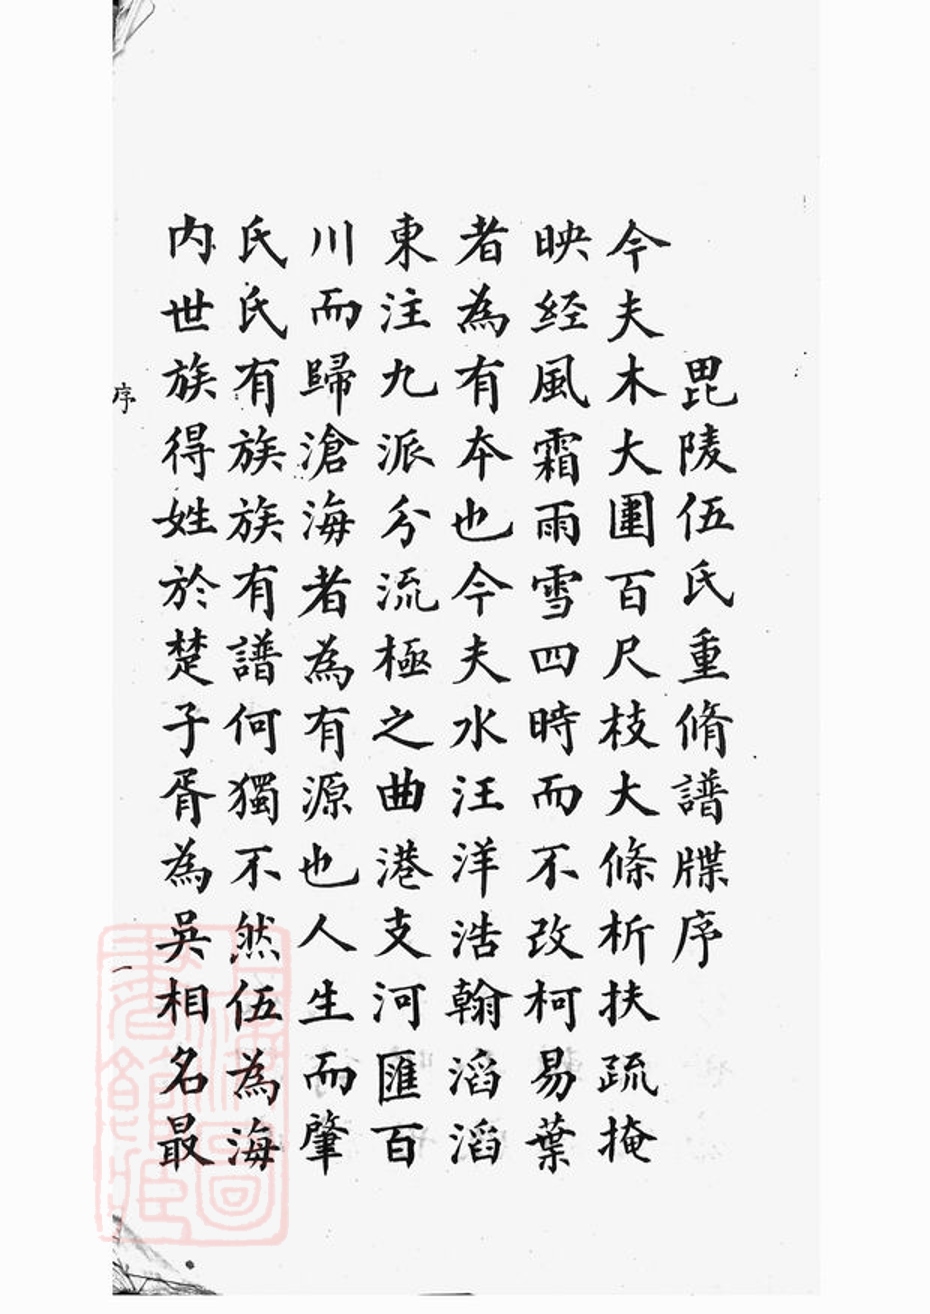 毘陵伍氏重脩譜牒序
今夫木大圍百尺枝大條析扶疏掩
映经風霜雨雪四時而不改柯易葉
者為有夲也今夫水汪洋浩翰滔滔
東注九派分流極之曲港支河匯百
川而歸滄海者為有源也人生而肇
氏氏有族族有譜何獨不然伍為海
内世族得姓於楚子胥為吳相名最
序
一
上海圖書館藏